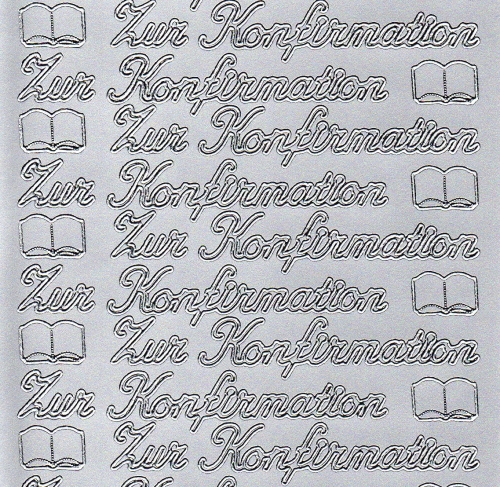 Zur Konfirmation
Zur Konfirmation
Zur Konfirmation
Zur Konfirmation
Zur Konfirmation
Zur Konfirmation
Zur Konfirmation
Zur Konfirmation
Zur Konfirmation